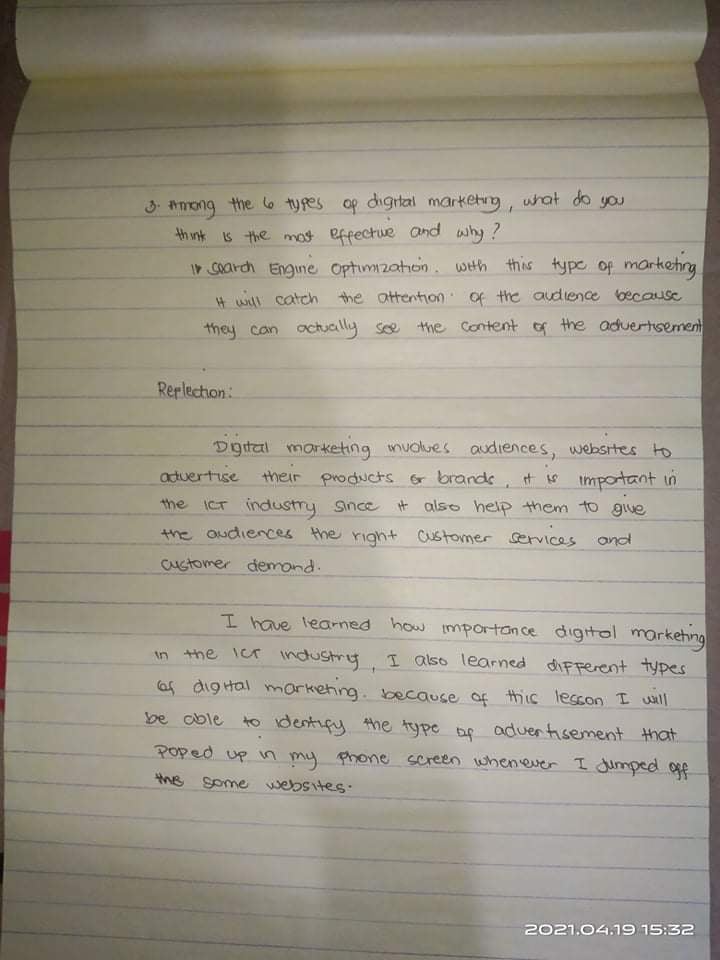 3. Among the 6 types of digital marketing, what do you
think is the most effective and why?
Search Engine Optimization. With this type of marketing
it will catch the attention of the audience because
they can actually see the content of the advertisement
Replection:
Digital marketing involves audiences, websites to
advertise their products or brands, it is important in
the ICT industry since it also help them to give
the audiences the right customer services and
customer demand.
I have learned how importance digital marketing
in the ICT industry, I also learned different types
of digital marketing. because of this lesson I will
be able to identify the type of advertisement that
poped up in my phone screen whenever I jumped off
some websites.
2021.04.19 15:32